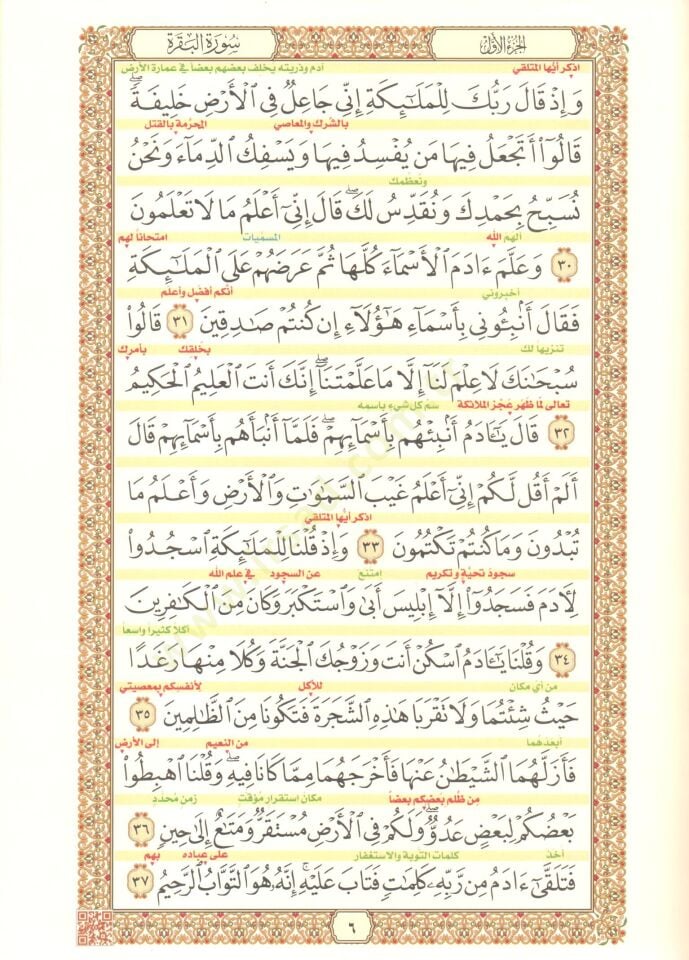 الجزء الأول
سورة البقرة
اذكر أيها المتلقي آدم وذريته يخلف بعضهم بعضا في عمارة الأرض
وَإِذْ قَالَ رَبُّكَ لِلْمَلَٰٓئِكَةِ إِنِّي جَاعِلٌ فِي ٱلْأَرْضِ خَلِيفَةً ۖ
بالشرك والمعاصي المحرمة بالقتل
قَالُوٓا۟ أَتَجْعَلُ فِيهَا مَن يُفْسِدُ فِيهَا وَيَسْفِكُ ٱلدِّمَآءَ وَنَحْنُ
ونعظمك
نُسَبِّحُ بِحَمْدِكَ وَنُقَدِّسُ لَكَ ۖ قَالَ إِنِّيٓ أَعْلَمُ مَا لَا تَعْلَمُونَ
ألهم الله المسميات امتحانا لهم
٣٠ وَعَلَّمَ ءَادَمَ ٱلْأَسْمَآءَ كُلَّهَا ثُمَّ عَرَضَهُمْ عَلَى ٱلْمَلَٰٓئِكَةِ
أخبروني أنكم أفضل وأعلم
فَقَالَ أَنۢبِـُٔونِي بِأَسْمَآءِ هَٰٓؤُلَآءِ إِن كُنتُمْ صَٰدِقِينَ ٣١ قَالُوا۟
تنزيها لك بخلقك بأمرك
سُبْحَٰنَكَ لَا عِلْمَ لَنَآ إِلَّا مَا عَلَّمْتَنَآ ۖ إِنَّكَ أَنتَ ٱلْعَلِيمُ ٱلْحَكِيمُ
تعالى لما ظهر عجز الملائكة سم كل شيء باسمه
٣٢ قَالَ يَٰٓـَٔادَمُ أَنۢبِئْهُم بِأَسْمَآئِهِمْ ۖ فَلَمَّآ أَنۢبَأَهُم بِأَسْمَآئِهِمْ قَالَ
أَلَمْ أَقُل لَّكُمْ إِنِّيٓ أَعْلَمُ غَيْبَ ٱلسَّمَٰوَٰتِ وَٱلْأَرْضِ وَأَعْلَمُ مَا
اذكر أيها المتلقي
تُبْدُونَ وَمَا كُنتُمْ تَكْتُمُونَ ٣٣ وَإِذْ قُلْنَا لِلْمَلَٰٓئِكَةِ ٱسْجُدُوا۟
سجود تحية وتكريم امتنع عن السجود في علم الله
لِـَٔادَمَ فَسَجَدُوٓا۟ إِلَّآ إِبْلِيسَ أَبَىٰ وَٱسْتَكْبَرَ وَكَانَ مِنَ ٱلْكَٰفِرِينَ
أكلا كثيرا واسعا
٣٤ وَقُلْنَا يَٰٓـَٔادَمُ ٱسْكُنْ أَنتَ وَزَوْجُكَ ٱلْجَنَّةَ وَكُلَا مِنْهَا رَغَدًا
من أي مكان للأكل لأنفسكم بمعصيتي
حَيْثُ شِئْتُمَا وَلَا تَقْرَبَا هَٰذِهِ ٱلشَّجَرَةَ فَتَكُونَا مِنَ ٱلظَّٰلِمِينَ ٣٥
أبعدهما من النعيم إلى الأرض
فَأَزَلَّهُمَا ٱلشَّيْطَٰنُ عَنْهَا فَأَخْرَجَهُمَا مِمَّا كَانَا فِيهِ ۖ وَقُلْنَا ٱهْبِطُوا۟
من ظلم بعضكم بعضا مكان استقرار مؤقت زمن محدد
بَعْضُكُمْ لِبَعْضٍ عَدُوٌّ ۖ وَلَكُمْ فِي ٱلْأَرْضِ مُسْتَقَرٌّ وَمَتَٰعٌ إِلَىٰ حِينٍ ٣٦
أخذ كلمات التوبة والاستغفار على عباده بهم
فَتَلَقَّىٰٓ ءَادَمُ مِن رَّبِّهِۦ كَلِمَٰتٍ فَتَابَ عَلَيْهِ ۚ إِنَّهُۥ هُوَ ٱلتَّوَّابُ ٱلرَّحِيمُ ٣٧
٦